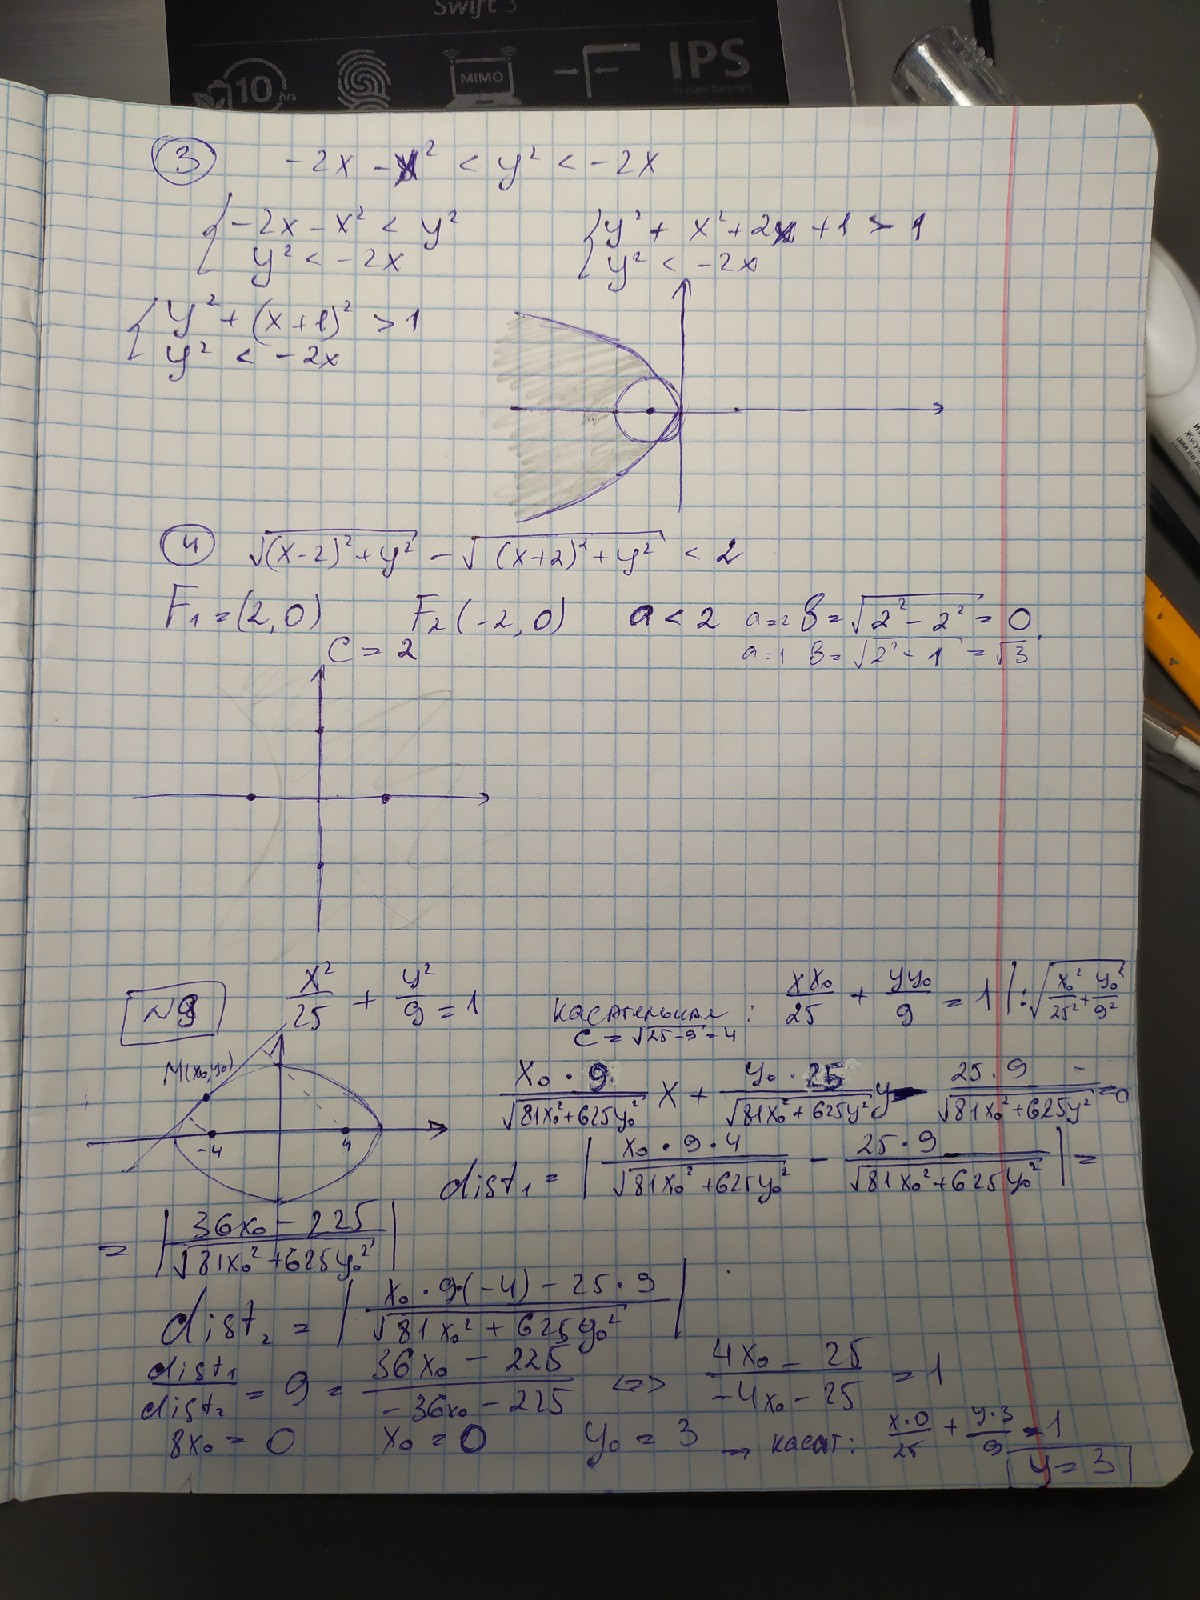 Swift 3
10 hrs
MIMO
IPS
③ -2x - x² < y² < -2x
{ -2x - x² < y²
y² < -2x
{ y² + x² + 2x + 1 > 1
y² < -2x
{ y² + (x+1)² > 1
y² < -2x
④ √((x-2)² + y²) - √((x+2)² + y²) < 2
F₁ = (2,0) F₂ (-2,0) a < 2 a=2 b = √(2² - 2²) = 0.
c = 2 a=1 b = √(2² - 1) = √3
№9 x²/25 + y²/9 = 1
касательная: xx₀/25 + yy₀/9 = 1 | : √(x₀²/25² + y₀²/9²)
c = √(25-9) = 4
M(x₀,y₀)
-4 4
x₀·9/√(81x₀²+625y₀²) x + y₀·25/√(81x₀²+625y²) y - 25·9/√(81x₀²+625y²) = 0
dist₁ = | x₀·9·4/√(81x₀²+625y₀²) - 25·9/√(81x₀²+625y₀²) | =
= | (36x₀ - 225)/√(81x₀²+625y₀²) |
dist₂ = | (x₀·9·(-4) - 25·9)/√(81x₀²+625y₀²) |
dist₁/dist₂ = 9 = (36x₀ - 225)/(-36x₀ - 225) <=> (4x₀ - 25)/(-4x₀ - 25) = 1
8x₀ = 0 x₀ = 0 y₀ = 3 → касат: x·0/25 + y·3/9 = 1
y = 3